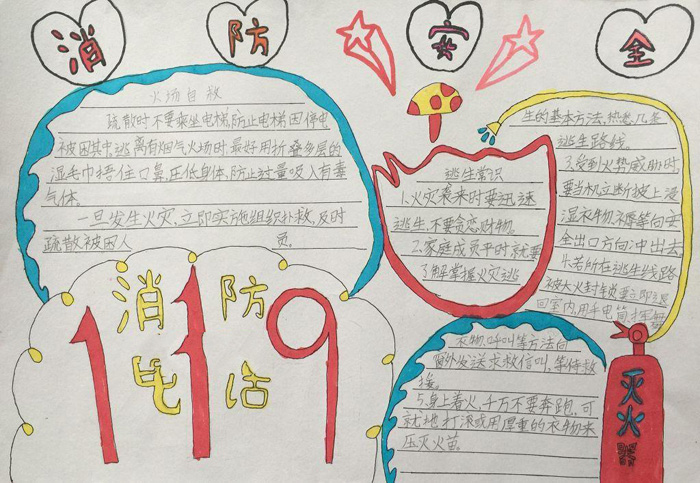 消 防 安 全
火场自救
疏散时不要乘坐电梯,防止电梯因停电
被困其中,逃离有烟气火场时,最好用折叠多层的
湿毛巾捂住口鼻,压低身体,防止过量吸入有毒
气体.
一旦发生火灾,立即实施组织扑救,及时
疏散被困人员.
逃生常识
1.火灾袭来时要迅速
逃生,不要贪恋财物.
2.家庭成员平时就要
了解掌握火灾逃
生的基本方法,熟悉几条
逃生路线.
3.受到火势威胁时,
要当机立断披上浸
湿衣物、褥等向安
全出口方向冲出去
4.若所在逃生线路
被大火封锁,要立即退
回室内,用手电筒,挥舞
衣物、呼叫等方法向
外发送求救信叫,等待救
援.
5.身上着火,千万不要奔跑,可
就地打滚或用厚重的衣物来
压灭火苗.
消防
电话
119
灭火器